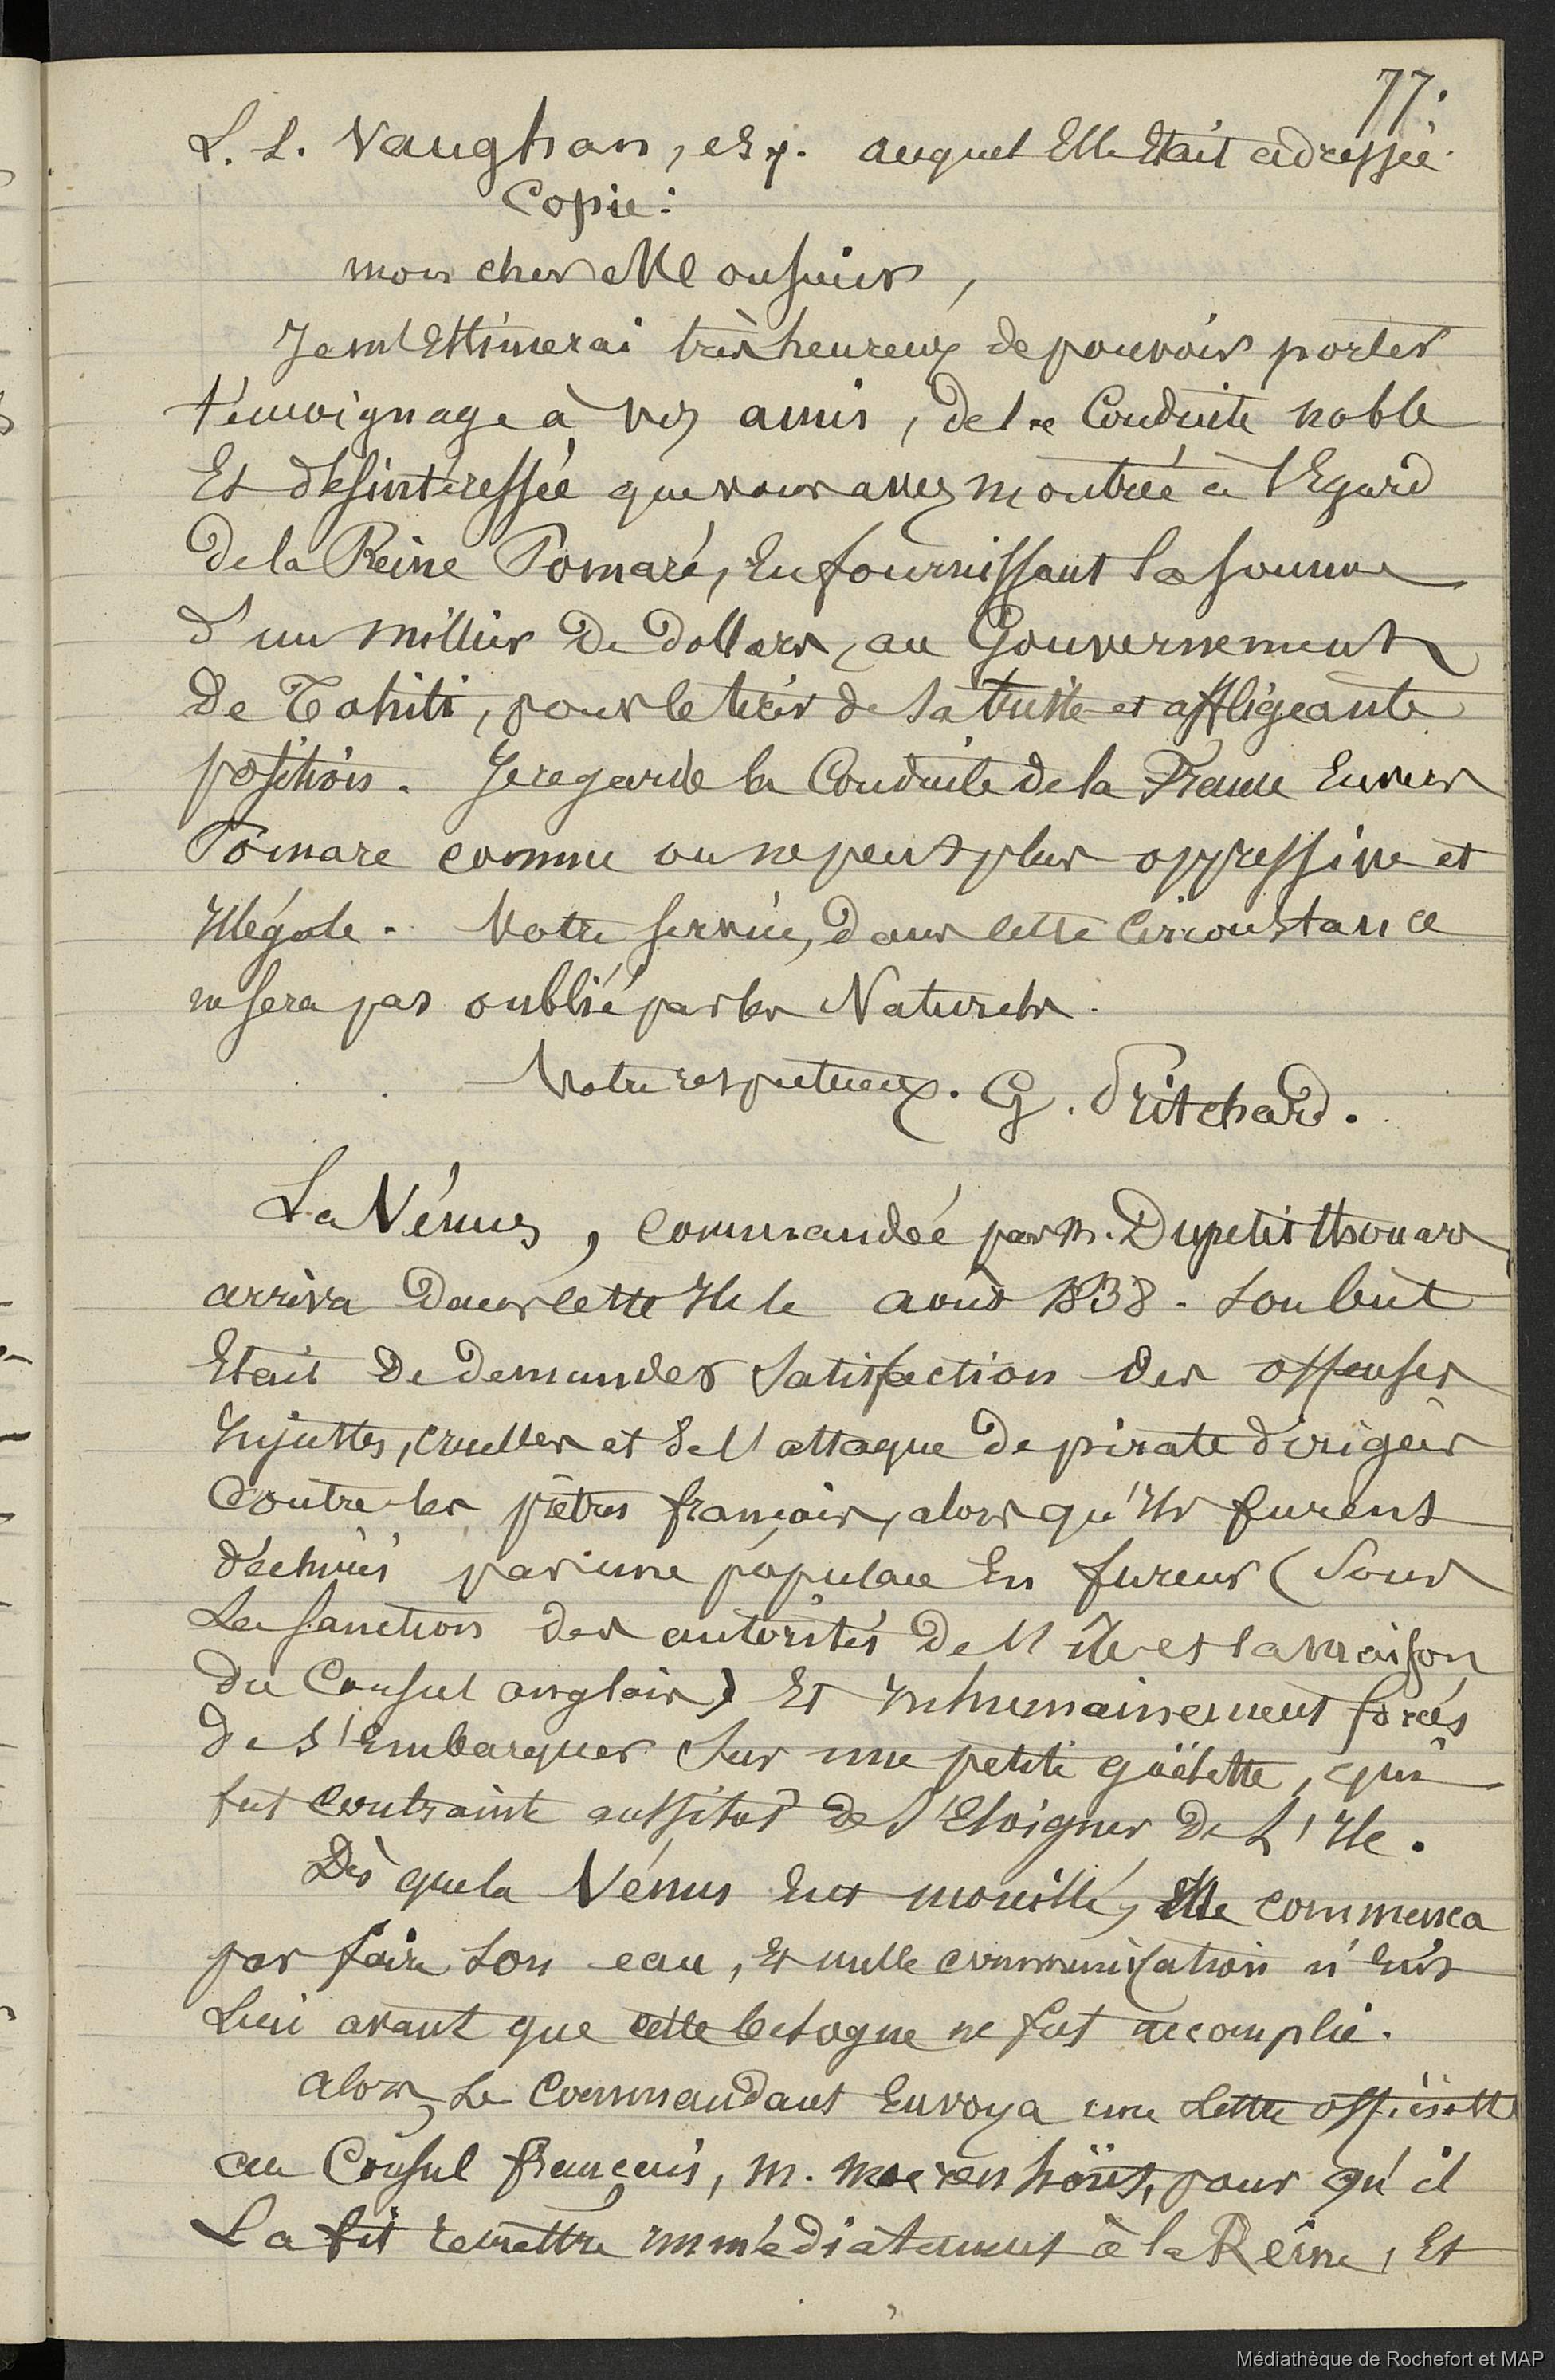 77.
L. L. Vaughan, esq. auquel Elle Etait adressée.
Copie :
mon cher Monsieur,
Je m'Estimerai très heureux de pouvoir porter
témoignage à vos amis, de la Conduite noble
Et désintéressée que vous avez montrée à l'Egard
de la Reine Pomaré, En fournissant la somme
d'un millier de dollars, au Gouvernement
de Tahiti, pour le tirer de sa triste et affligeante
position. Je regarde la Conduite de la France Envers
Pomare comme on ne peut plus oppressive et
Illégale. Votre service, dans cette Circonstance
ne sera pas oublié par les Naturels.
Votre respectueux. G. Pritchard.
La Vénus, commandée par M. Dupetit Thouars
arriva dans cette Ile le août 1838. Son but
Etait de demander satisfaction des offenses
Injustes, cruelles et de l'attaque de pirate dirigées
Contre les prêtres français, alors qu'Ils furent
par une populace En fureur (Sous
La sanction des autorités de l'île et la maison
du Consul anglais) Et Inhumainement forcés
de s'Embarquer sur une petite goëlette, qui
fut Contrainte aussitôt de s'Eloigner de L'Ile.
Dès que la Vénus Eut mouillé, Elle commenca
par faire son eau, Et nulle communication n'Eut
Lieu avant que cette besogne ne fut accomplie.
alors, Le Commandant Envoya une Lettre officielle
au Consul français, M. Moerenhoüt, pour qu'il
La fit remettre immédiatement à la Reine, Et
Médiathèque de Rochefort et MAP